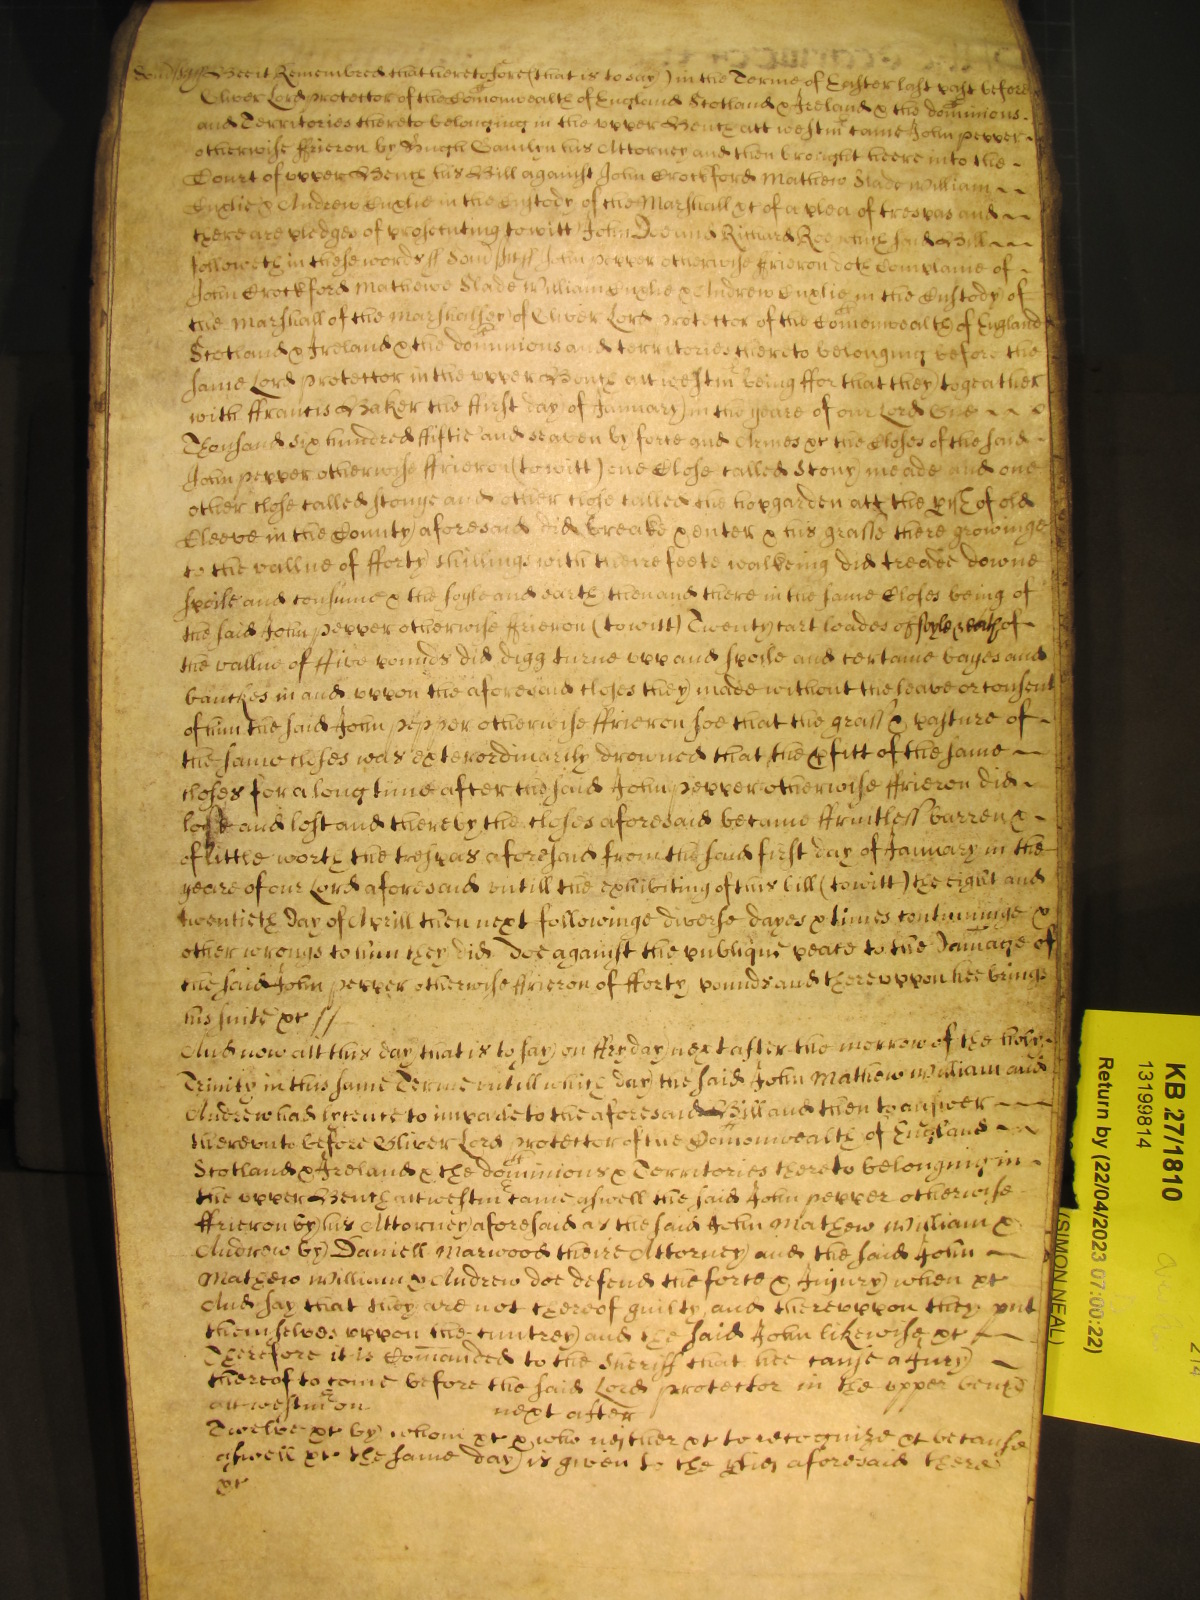 Somsett ss Bee it Remembred that heretofore (that is to say) in the Terme of Easter last past before
Oliver Lord protector of the Comonwealth of England Scotland & Ireland & the dominions
and Territories thereto belonging in the upper Bench att westm came John pepper
otherwise ffrieron by Hugh Gamlyn his Attorney and then brought heere into the
Court of upper Bench his Bill against John Crockford Mathew Slade William
Englie & Andrew Englie in the Custody of the Marshall &c of a plea of trespas and
there are pledges of prosecuting to witt John Doe and Richard Roe which said Bill
followeth in these words ss Somsett ss John pepper otherwise ffrieron doth Complaine of
John Crockford Mathewe Slade William Englie & Andrew Englie in the Custody of
the Marshall of the Marshalsey of Oliver Lord protector of the Comonwealth of England
Scotland & Ireland & the dominions and territories thereto belonging before the
same Lord protector in the upper Bench att westm being ffor that they togeather
with ffrancis Baker the ffirst day of January in the yeare of our Lord One
Thousand six hundred ffiftie and seaven by force and Armes &c the Closes of the said
John pepper otherwise ffrieron (to witt) one Close called Stony meade and one
other close called stonye and other close called the hopgarden att the pish of old
Cleeve in the County aforesaid did breake & enter & his grasse there growinge
to the vallue of fforty shillings with theire feete walkeing did treade downe
spoile and consume & the soyle and earth then and there in the same Closes being of
the said John pepper otherwise ffrieron (to witt) Twenty cart loades of soyle & earth of
the vallue of ffive pounds did digg turne upp and spoile and certaine bayes and
banckes in and uppon the aforesaid closes they made without the leave or consent
of him the said John pepper otherwise ffrieron soe that the grass & pasture of
the same closes was exterordinarily drowned that the pfitt of the same
closes for a long time after the said John pepper otherwise ffrieron did
lose and lost and thereby the closes aforesaid became ffruitless barren &
of little worth the trespas aforesaid from the said first day of January in the
yeare of our Lord aforesaid untill the exhibiting of this bill (to witt) the eight and
twentieth day of Aprill then next followinge diverse dayes & times continuinge &
other wrongs to him they did doe against the publique peace to the damage of
the said John pepper otherwise ffrieron of fforty pounds and thereuppon hee brings
his suite &c //
And now att this day that is to say on ffryday next after the morrow of the holy
Trinity in this same Terme untill which day the said John Mathew William and
Andrew had licence to imparle to the aforesaid Bill and then to answer
thereunto before Oliver Lord protector of the Comonwealth of England
Scotland & Ireland & the dominions & Territories thereto belonging in
the upper Bench att westm came aswell the said John pepper otherwise
ffrieron by his Attorney aforesaid as the said John Mathew William &
Andrew by Daniell Marwood theire Attorney and the said John
Mathew William & Andrew doe defend the force & Injury when &c
And say that they are not thereof guilty and thereuppon they put
themselves uppon the cuntrey and the said John likewise &c
Therefore it is Comanded to the Sheriff that hee cause a Jury
thereof to come before the said Lord protector in the upper bench
att westm on next after
Twelve &c by whom &c & who neither &c to recognize &c because
aswell &c the same day is given to the pties aforesaid there
&c
KB 27/1810
13199814
Return by (22/04/2023 07:00:22)
(SIMON NEAL)